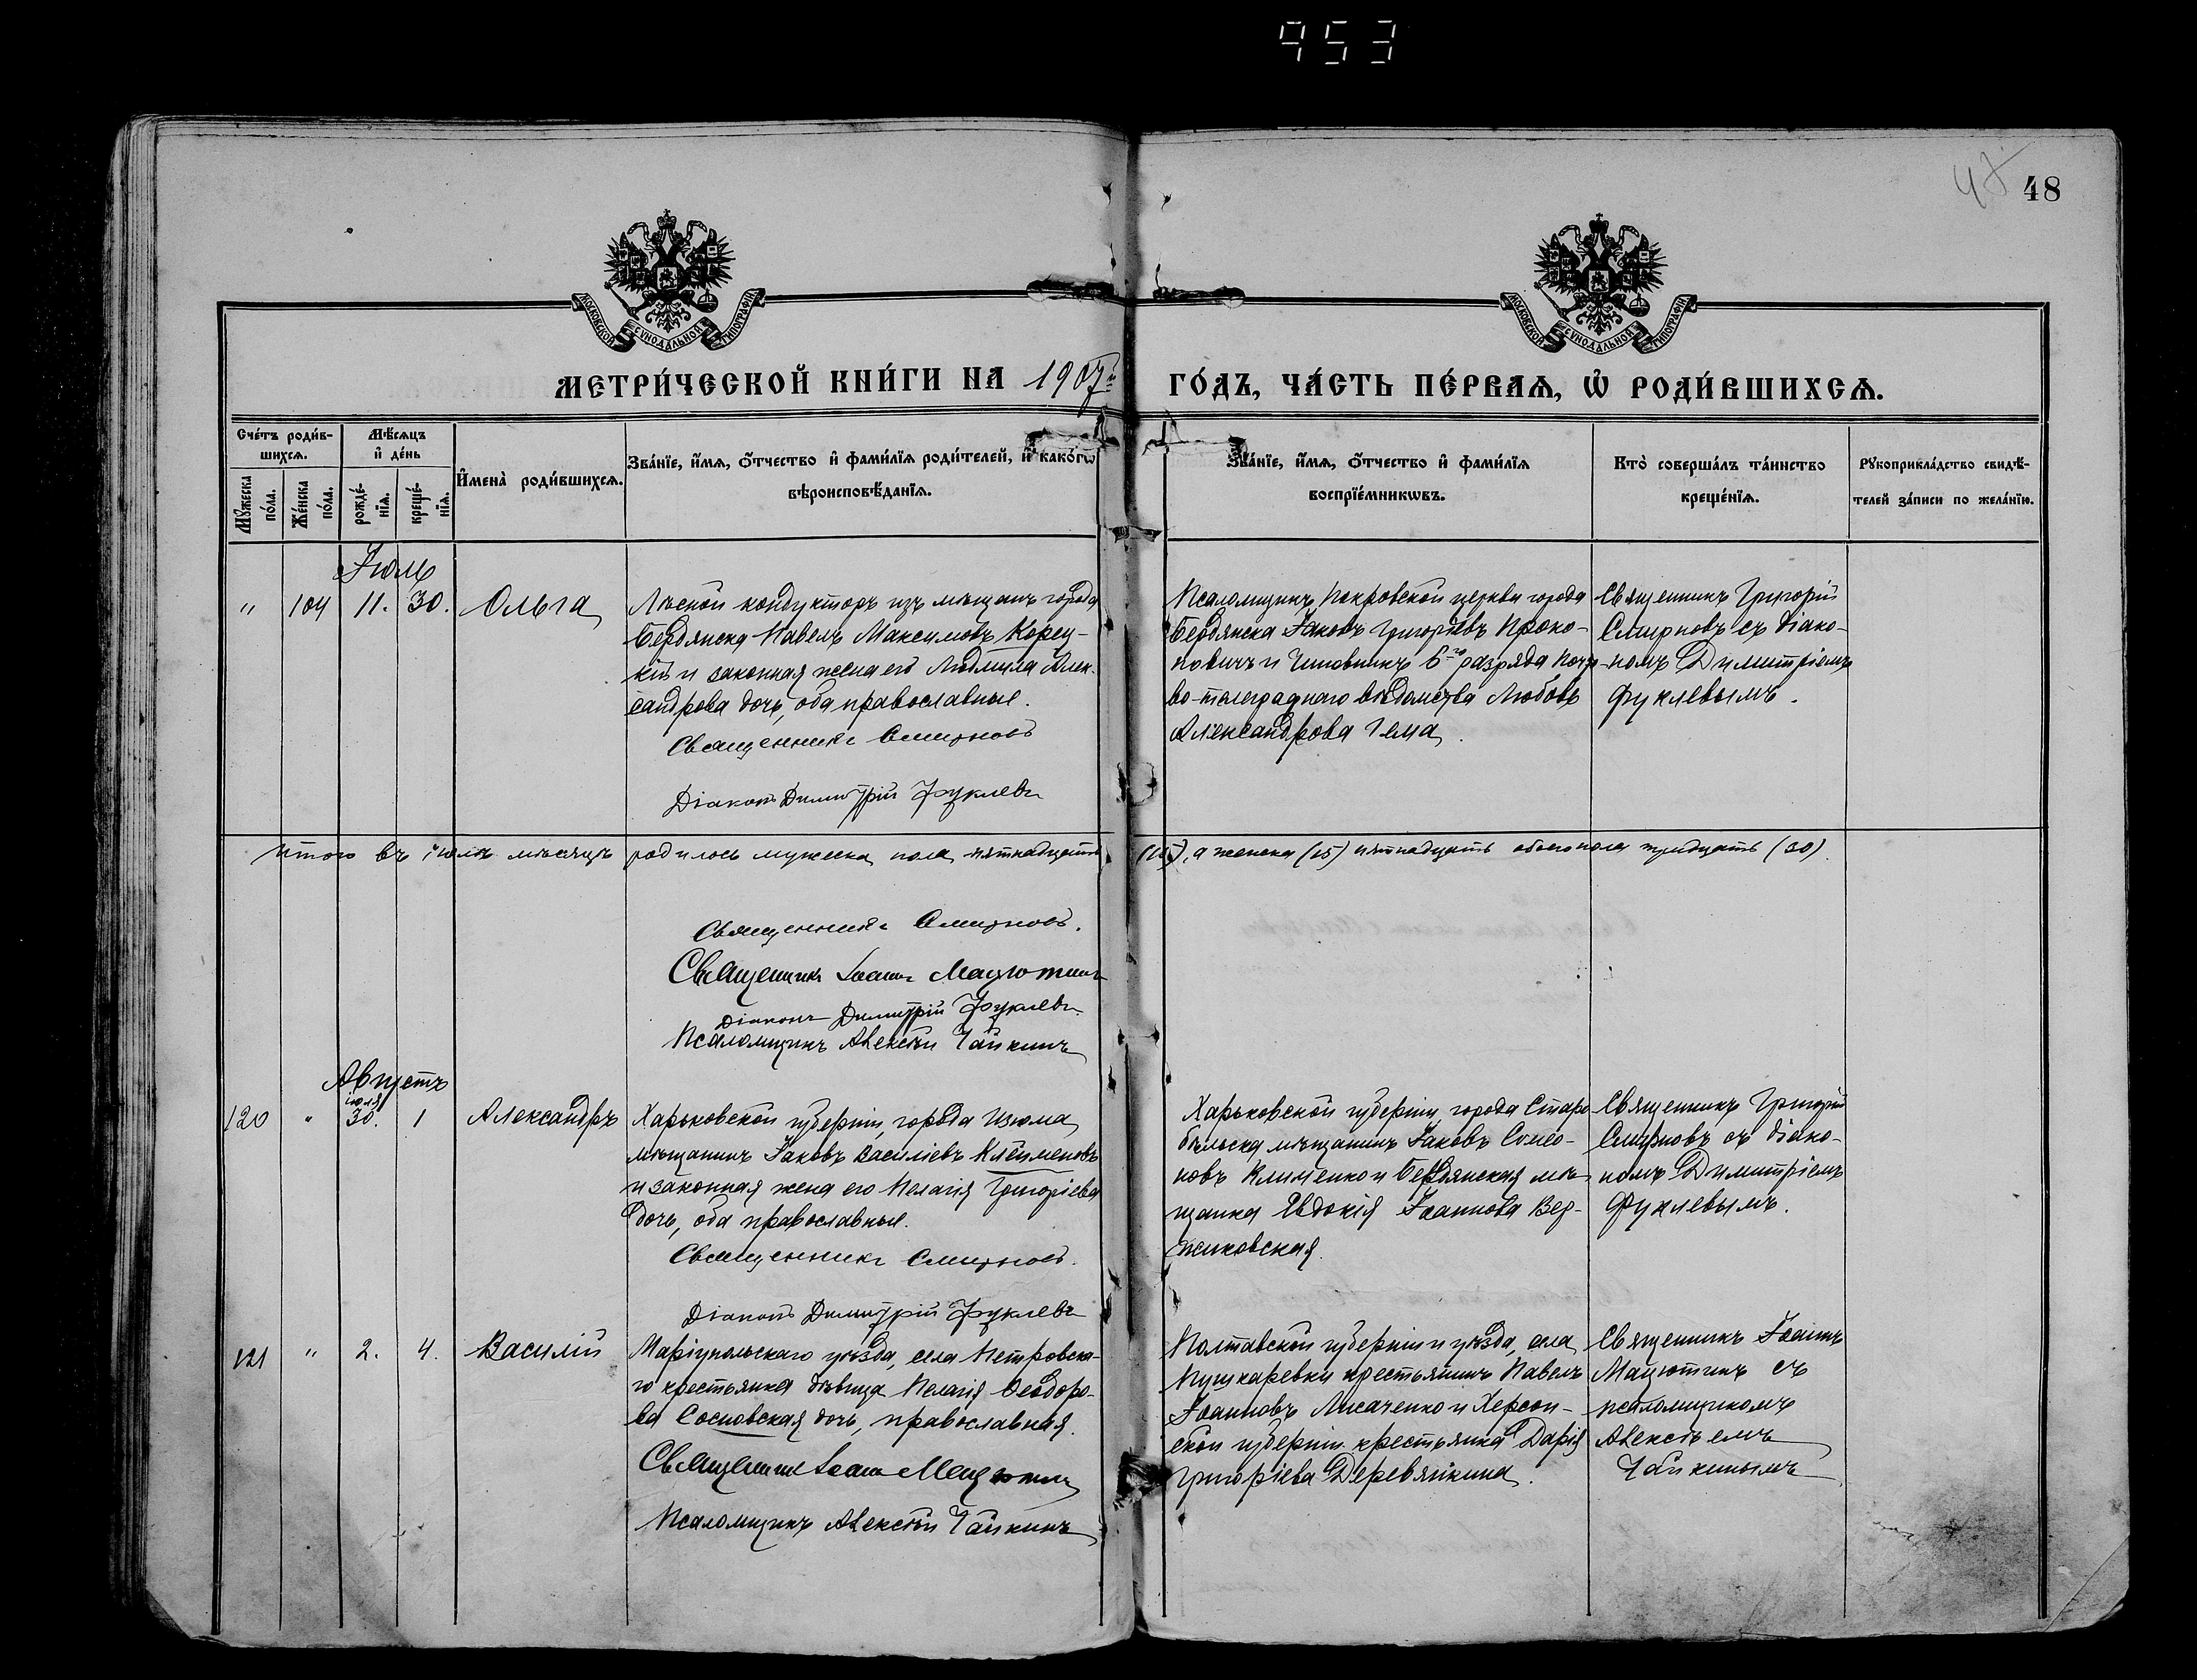 953
48
48
МОСКОВСКОЙ СѴНОДАЛЬНОЙ ТИПОГРАФІИ
МОСКОВСКОЙ СѴНОДАЛЬНОЙ ТИПОГРАФІИ
МЕТРИ́ЧЕСКОЙ КНИ́ГИ НА 1907й ГО́ДЪ, ЧА́СТЬ ПЕ́РВАѦ, Ѡ҆ РОДИ́ВШИХСѦ.
Сче́тъ роди́в-
шихсѧ.
Мѣ́сѧцъ
и҆ де́нь
Мꙋ́жеска
по́ла.
Же́нска
по́ла.
рожде́-
нїѧ.
креще́-
нїѧ.
И҆мена̀ роди́вшихсѧ.
Зва́нїе, и҆́мѧ, ѻ҆́тчество и҆ фами́лїѧ роди́телей, и҆ како́гѡ
вѣроисповѣ́данїѧ.
Зва́нїе, и҆́мѧ, ѻ҆́тчество и҆ фами́лїѧ
воспрїе́мникѡвъ.
Кто̀ соверша́лъ та́инство
креще́нїѧ.
Рꙋкоприкла́дство свидѣ́-
телей за́писи по жела́нїю.
Іюль
" 104 11. 30. Ольга
Лѣсной кондукторъ изъ мѣщанъ города
Бердянска Павелъ Максимовъ Корец-
кій и законная жена его Людмила Алек-
сандрова дочь, оба православные.
Священникъ Смирновъ
Діаконъ Димитрій Фуклевъ
Псаломщикъ Покровской церкви города
Бердянска Іаковъ Григоріевъ Проко-
повичъ и Чиновникъ 6-го разряда почто-
во-телеграфнаго вѣдомства Любовь
Александрова Гема.
Священникъ Григорій
Смирновъ съ діако-
номъ Димитріемъ
Фуклевымъ.
Итого въ іюлѣ мѣсяцѣ родилось мужеска пола пятнадцать (15), а женска (15) пятнадцать обоего пола тридцать (30).
Священникъ Смирновъ.
Священникъ Іоаннъ Мацютинъ
Діаконъ Димитрій Фуклевъ
Псаломщикъ Алексѣй Чайкинъ
Августъ
120 " іюля 30. 1 Александръ
Харьковской губерніи, города Изюма
мѣщанинъ Іаковъ Василіевъ Клейменовъ
и законная жена его Пелагія Григоріева
дочь, оба православные.
Священникъ Смирновъ.
Діаконъ Димитрій Фуклевъ
Харьковской губерніи города Старо-
бѣльска мѣщанинъ Іаковъ Симео-
новъ Клименко и Бердянская мѣ-
щанка Евдокія Іоаннова Вер-
жиковская.
Священникъ Григорій
Смирновъ съ діако-
номъ Димитріемъ
Фуклевымъ.
121 " 2. 4. Василій
Маріупольскаго уѣзда, села Петровска-
го крестьянка дѣвица Пелагія Ѳеодоро-
ва Сосновская дочь, православная.
Священникъ Іоаннъ Мацютинъ
Псаломщикъ Алексѣй Чайкинъ
Полтавской губерніи и уѣзда, села
Пушкаревки крестьянинъ Павелъ
Іоанновъ Лисаченко и Херсон-
ской губерніи крестьянка Дарія
Григоріева Деревянкина.
Священникъ Іоаннъ
Мацютинъ съ
псаломщикомъ
Алексѣемъ
Чайкинымъ